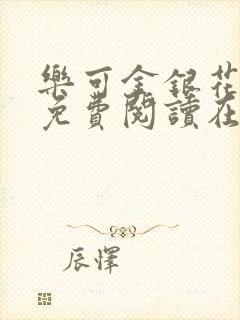 樂可金銀花
免費閱讀在
辰懌